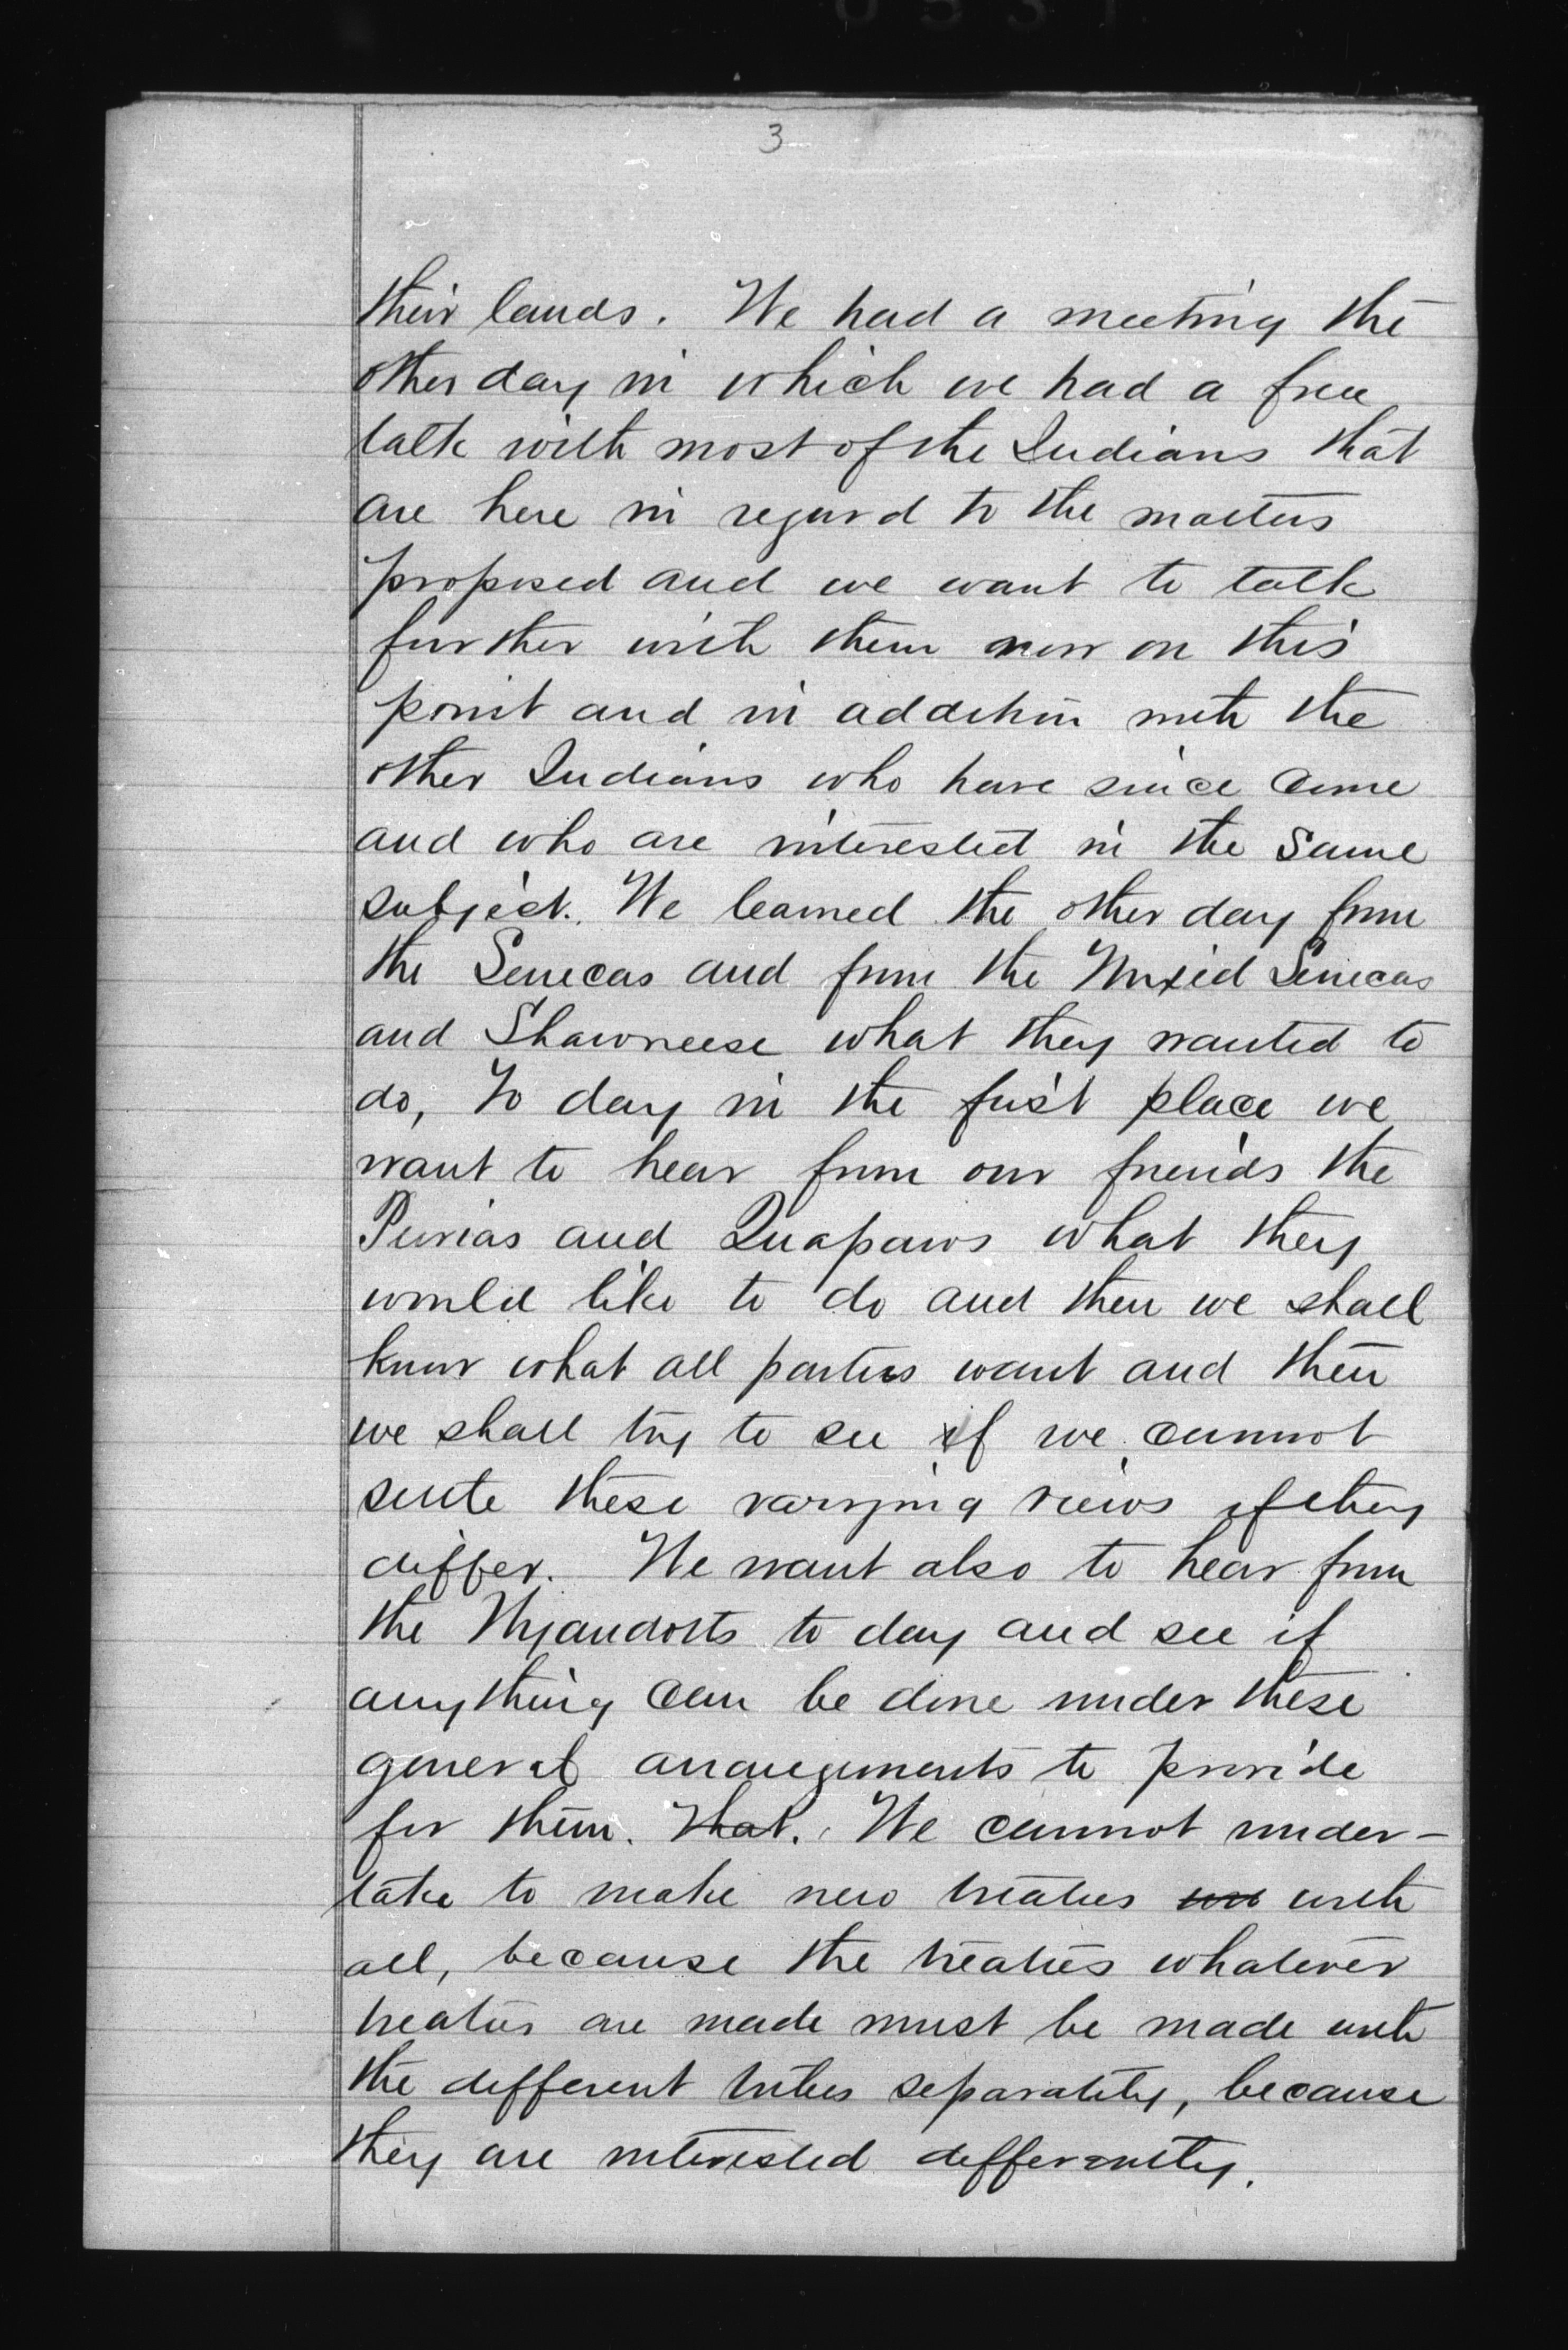 3
their lands. We had a meeting the
other day in which we had a free
talk with most of the Indians that
are here in regard to the matters
proposed and we want to talk
further with them now on this
point and in addition with the
other Indians who have since come
and who are interested in the same
subject. We learned the other day from
the Senecas and from the Mixed Senecas
and Shawneese what they wanted to
do, To day in the first place we
want to hear from our friends the
Peorias and Quapaws what they
would like to do and then we shall
know what all parties want and then
we shall try to see if we cannot
suite these varying views if they
differ. We want also to hear from
the Wyandotts to day and see if
anything can be done under these
general arrangements to provide
for them. That. We cannot under-
take to make new treaties with
all, because the treaties whatever
treaties are made must be made with
the different tribes separately, because
they are interested differently.